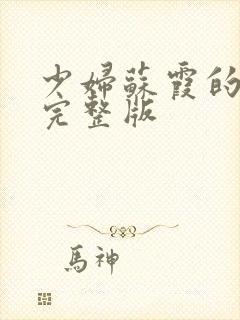 少婦蘇霞的
完整版
馬神